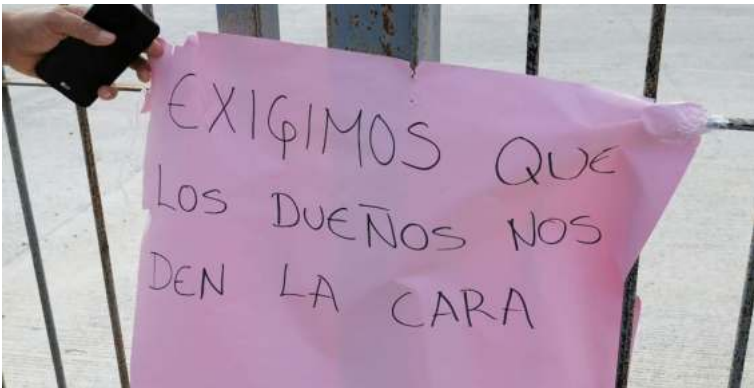 EXIGIMOS QUE
LOS DUEÑOS NOS
DEN LA CARA